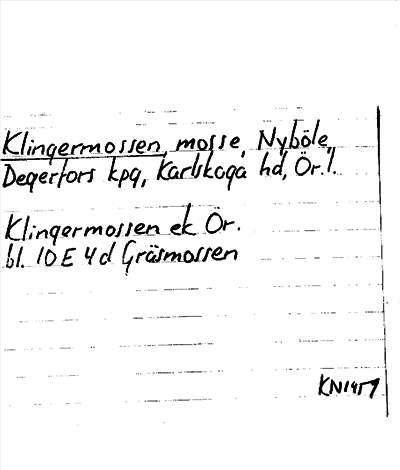 Klingermossen, mosse, Nyböle,
Degerfors kpg, Karlskoga hd, Ör.l.
Klingermossen ek Ör.
bl. 10E 4d Gräsmossen